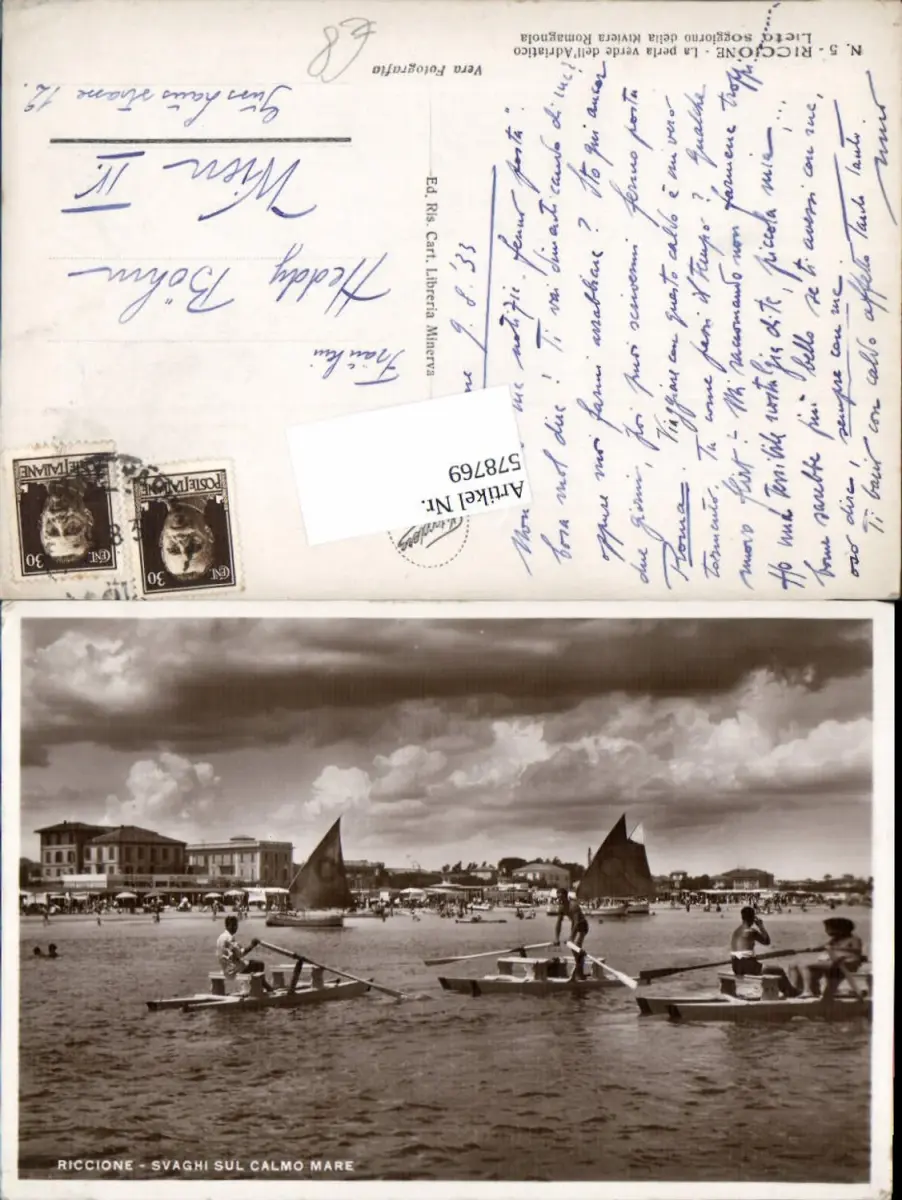 N. 5 - RICCIONE - La perla verde dell'Adriatico
Lieto soggiorno della Riviera Romagnola
Vera Fotografia
Ed. Ris. Cart. Libreria Minerva
€8
9. 8. '33
Non notizie fermo posta
bona mal due! Ti vai dimenticando di me?
oppure vuoi farmi arrabbiare? Sto qui ancora
due giorni, poi puoi scrivermi fermo posta
Roma. Viaggiare con questo caldo è un vero
tormento. Tu come passi il tempo? Qualche
nuovo flirt? Mi raccomando non farmene troppi
Ho una terribile nostalgia di te, piccola mia!
come sarebbe più bello se ti avessi con me,
oso dire, sempre con me.
Ti bacio con caldo affetto tanto tanto.
Fräulein
Heddy Böhm
Wien IV.
Gusshausstrasse 12.
Artikel Nr.
578769
POSTE ITALIANE
CENT 30
POSTE ITALIANE
CENT 30
RICCIONE - SVAGHI SUL CALMO MARE